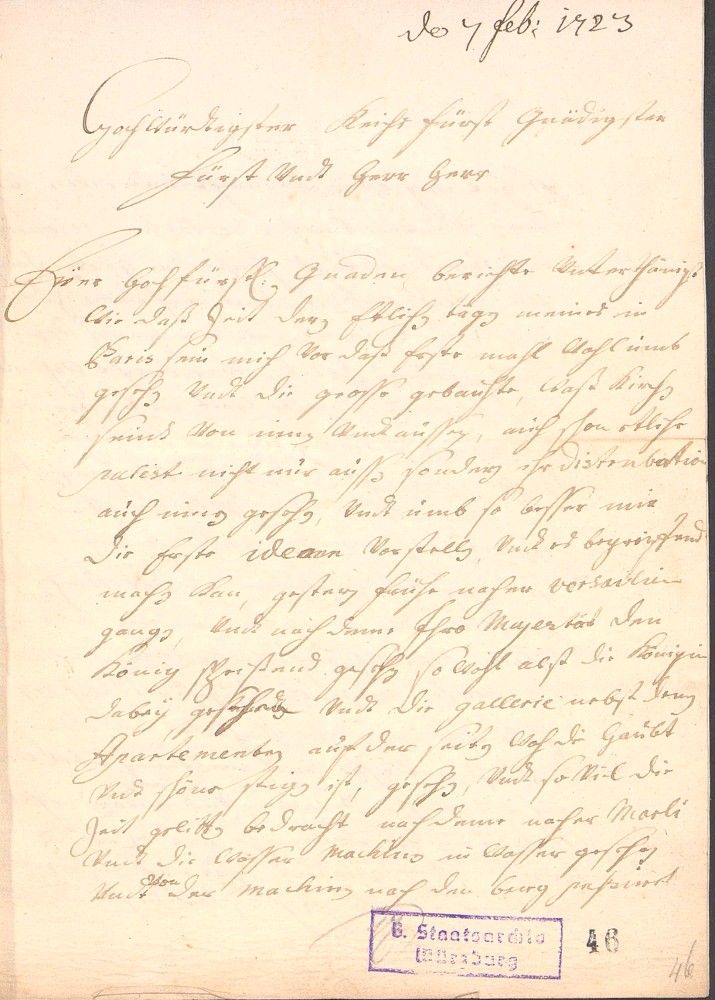 de 7 feb: 1723
Hochwürdigster Reichs fürst Gnädigster
fürst Undt Herr Herr
Euer Hochfürstl: Gnaden berichte Unterthänigst
Wie daß Zeit dero Etliche tage meines in
Paris sein mich Vor daß Erste mahl Wohl umb
gesehen Undt die grosse gebaüthe, Waß Kirchen
seindt Von innen Undt aussen, auch schon etliche
palest nicht nur aussen sondern ihr distribution
auch innen gesehen, Undt umb so besser mir
die Erste ideaen Vorstellen, Undt es begreiffend
machen Kan, gestern fruhe naher versailie
gangen, Undt nach deme Ihro Majestät den
König speißend gesehen so Wohl alß die Königin
dabey Undt die gallerie nebst denen
Apartementen auf der seithen Woh die Haubt
Undt schöne stigen ist, gesehen, Undt so Viel die
Zeit gelitten bedracht nach deme naher Marli
Undt die Wasser machine in Wasser gesehen
Undt von der machinen nach den berg
B. Staatsarchiv
Würzburg
46
46